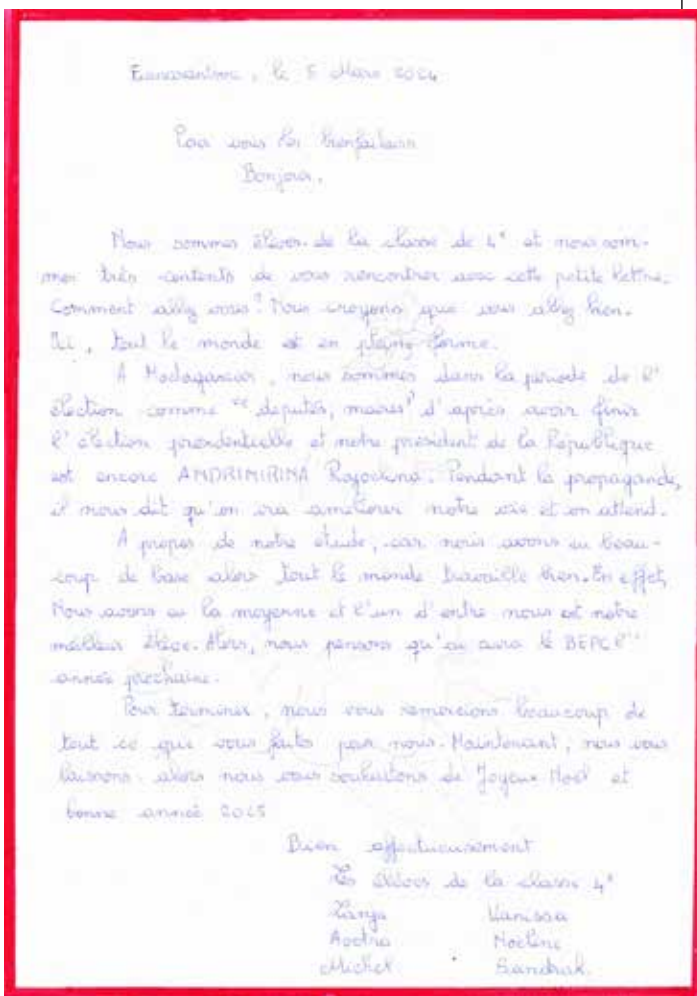 le 5 Mars 2024
Pour vous les bienfaiteurs
Bonjour.
Nous sommes élèves de la classe de 4e et nous som-
mes très contents de vous rencontrer avec cette petite lettre.
Comment allez vous? Nous croyons que vous allez bien.
Ici, tout le monde est en pleine forme.
A Madagascar, nous sommes dans la periode de l'
élection comme "deputés, maires" d'après avoir finir
l'élection presidentielle et notre président de la République
est encore ANDRINIRINA Rajoelina. Pendant la propagande,
il nous dit qu'on ira améliorer notre vie et on attend.
A propos de notre étude, car nous avons eu beau-
coup de base alors tout le monde travaille bien. En effet,
Nous avons eu la moyenne et l'un d'entre nous est notre
meilleur élève. Alors, nous pensons qu'on aura le BEPC l'
année prochaine.
Pour terminer, nous vous remercions beaucoup de
tout ce que vous faites par nous. Maintenant, nous vous
laissons alors nous vous souhaitons de Joyeux Noël et
bonne année 2025
Bien affectueusement
Les élèves de la classe 4e
Vanissa
Noeline
Michel